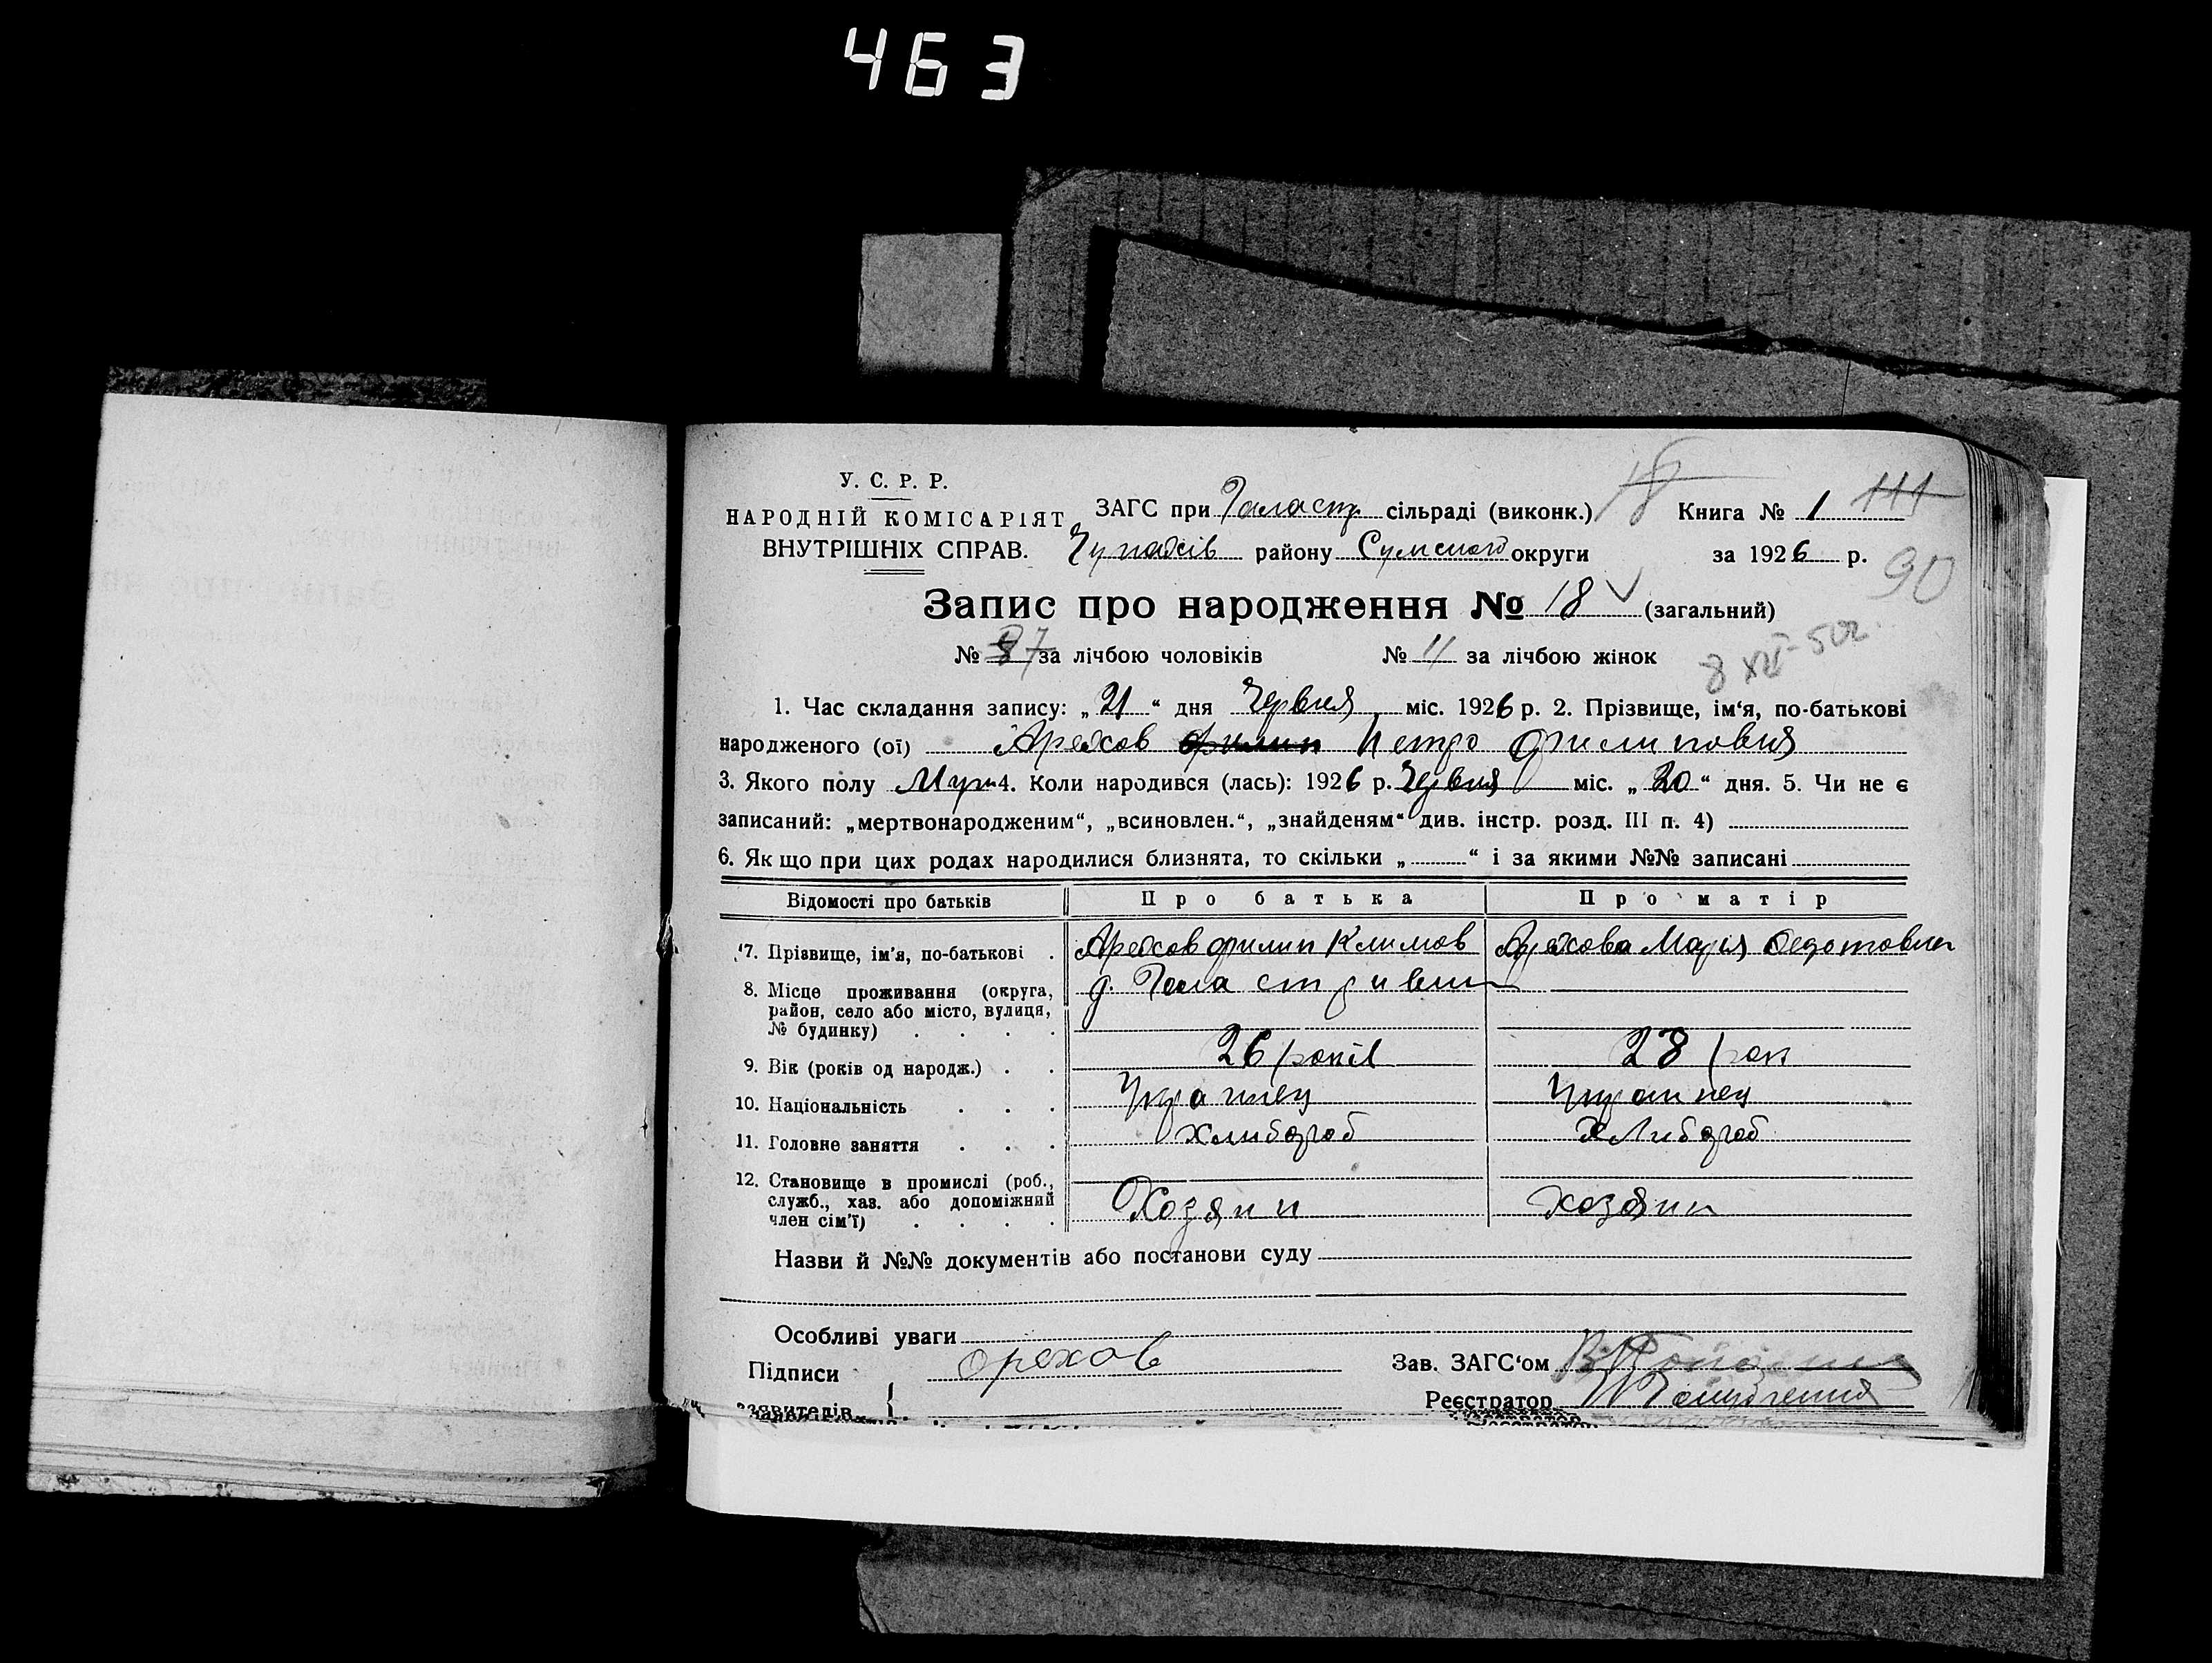 463
У. С. Р. Р.
НАРОДНІЙ КОМІСАРІЯТ
ВНУТРІШНІХ СПРАВ.
ЗАГС при Галастр сільраді (виконк.) 18 Книга № 1 111
Чупахів району Сумского округи за 1926 р.
90
Запис про народження № 18 (загальний)
№ 7 за лічбою чоловіків № 11 за лічбою жінок
8 XII-50г.
1. Час складання запису: „21“ дня Червня міс. 1926 р. 2. Прізвище, ім‘я, по-батькові
народженого (ої) Арехов Филип Петро Филиповия
3. Якого полу Муж 4. Коли народився (лась): 1926 р. Червня міс. „20“ дня. 5. Чи не є
записаний: „мертвонародженим“, „всиновлен.“, „знайденям“ див. інстр. розд. III п. 4)
6. Якщо при цих родах народилися близнята, то скільки „ “ і за якими №№ записані
Відомості про батьків Про батька Про матір
7. Прізвище, ім'я, по-батькові Арехов Филип Климов Арехова Марія Федотовна
8. Місце проживання (округа, район, село або місто, вулиця, № будинку) д.
9. Вік (років од народж.) 26 років 28 рок
10. Національність Украинец Украинец
11. Головне заняття Хлибороб Хлибороб
12. Становище в промислі (роб., служб., хаз. або допоміжний член сім'ї) Хозяин хозяин
Назви й №№ документів або постанови суду
Особливі уваги
Підписи заявителів { орехов
Зав. ЗАГС‘ом
Реєстратор